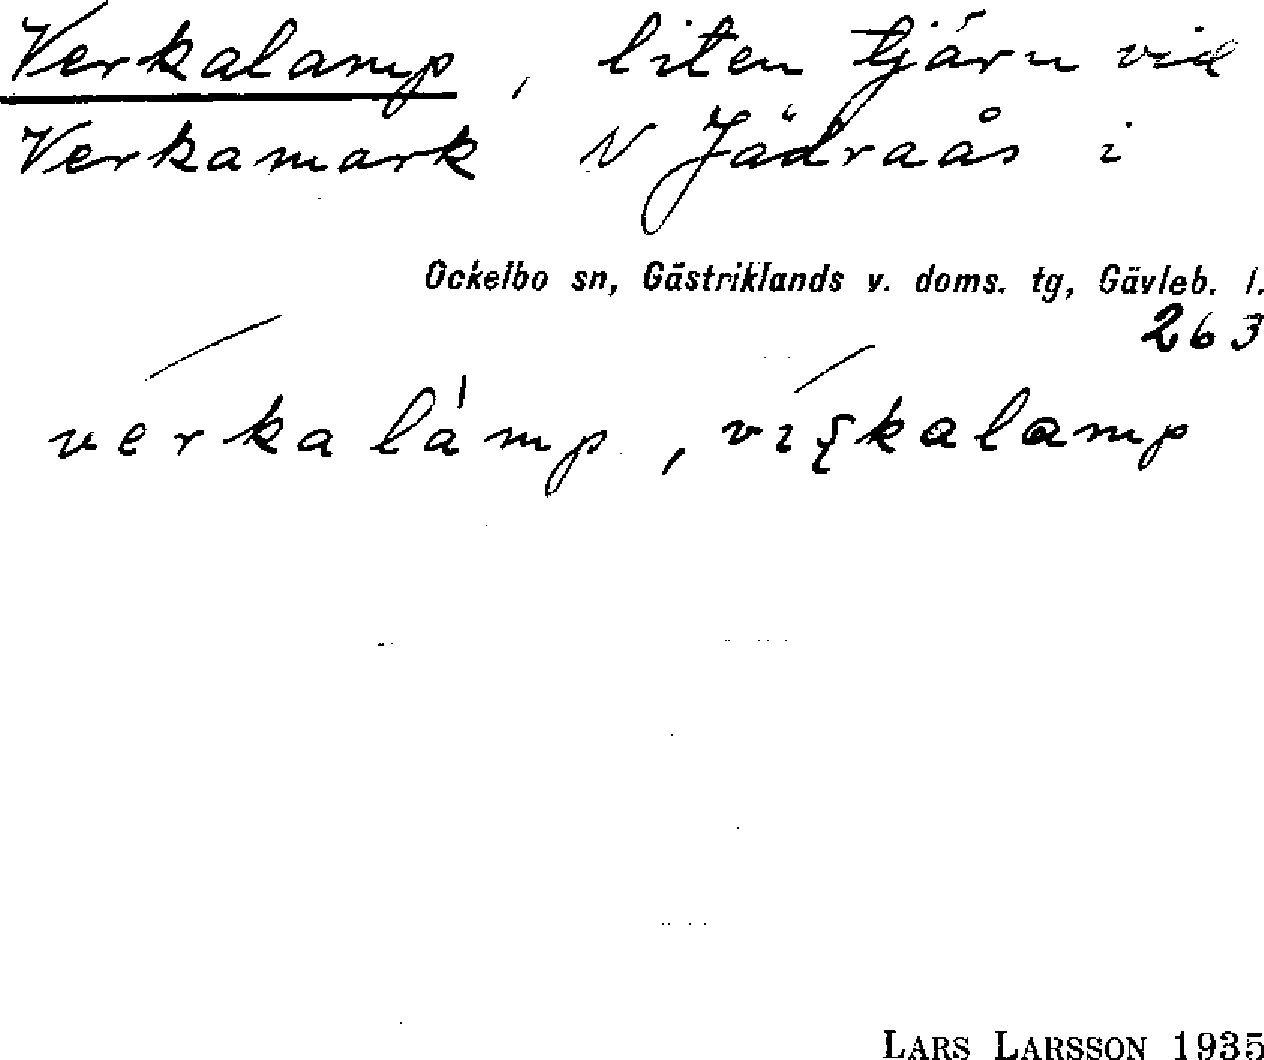 Verkalamp, liten tjärn vid
Verkamark N Jädraås i
Ockelbo sn, Gästriklands v. doms. tg, Gävleb. l.
263
vérkalámp, viʂkalamp
LARS LARSSON 1935